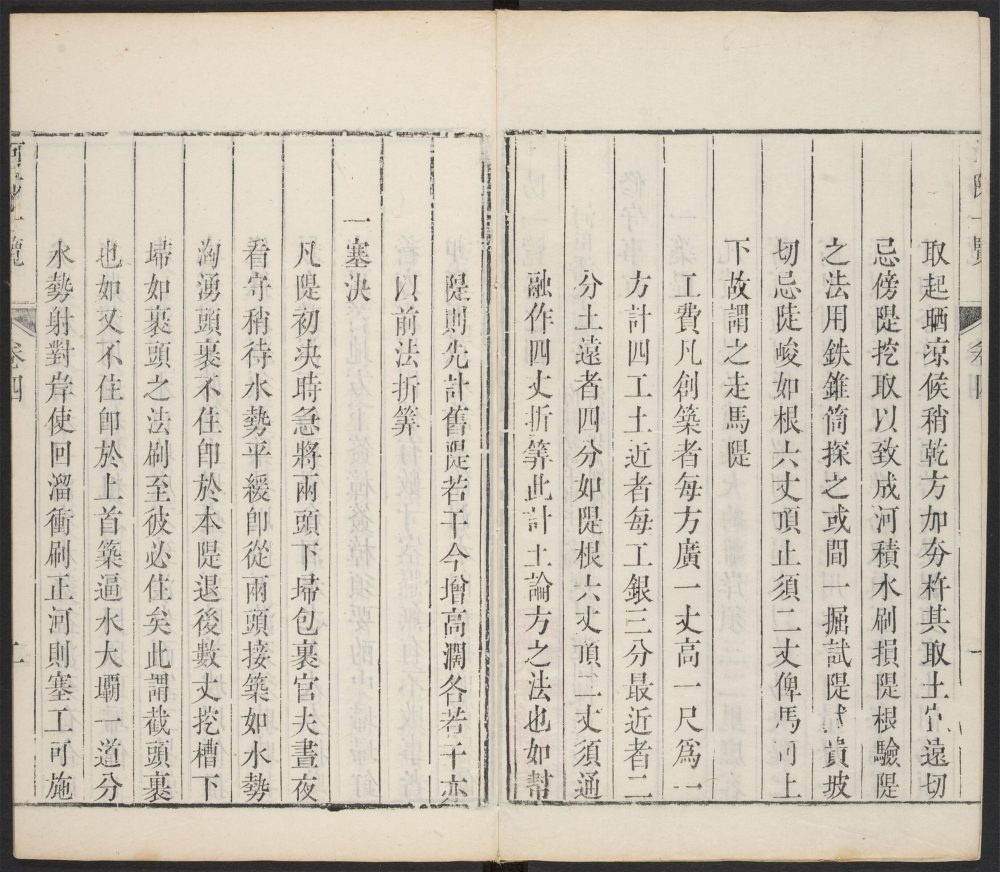 取起晒涼候稍乾方加夯杵其取土宜遠切
忌傍隄挖取以致成河積水刷損隄根驗隄
之法用鉄錐筒探之或間一掘試隄式貴坡
切忌陡峻如根六丈頂止須二丈俾馬可上
下故謂之走馬隄
工費凡創築者每方廣一丈高一尺爲一
方計四工土近者每工銀三分最近者二
分土遠者四分如隄根六丈頂二丈須通
融作四丈折筭此計土論方之法也如幇
隄則先計舊隄若干今增高濶各若干亦
以前法折筭
一塞决
凡隄初决時急將兩頭下埽包裹官夫晝夜
看守稍待水勢平緩卽從兩頭接築如水勢
洶湧頭裹不住卽於本隄退後數丈挖槽下
埽如裹頭之法刷至彼必住矣此謂截頭裹
也如又不住卽於上首築逼水大壩一道分
水勢射對岸使回溜衝刷正河則塞工可施
河防一覽
卷四
二